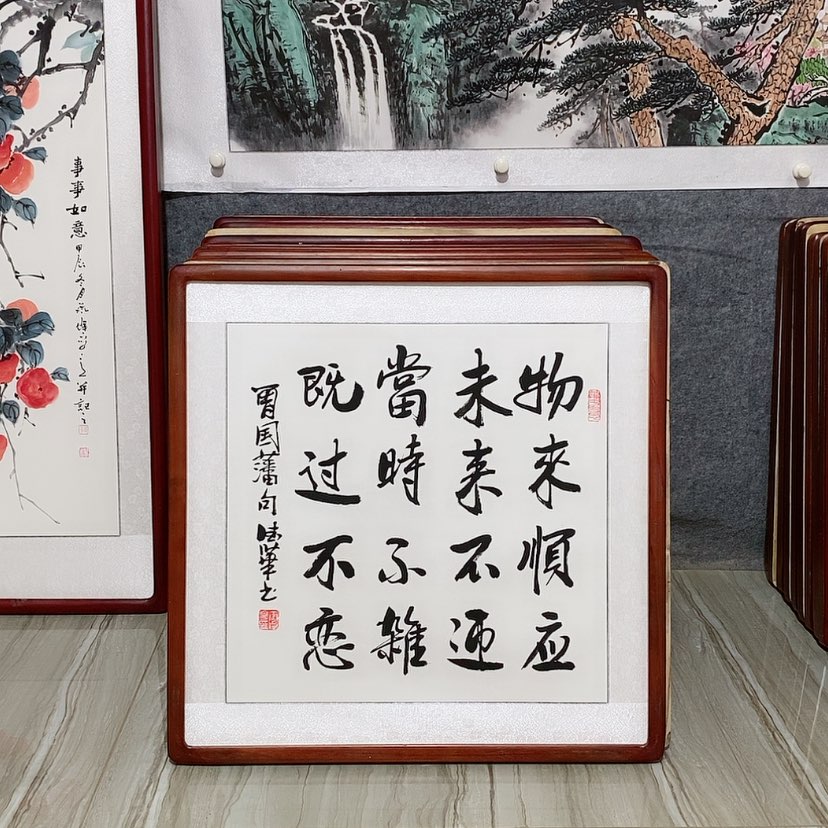 物來順应
未来不迎
當時不雜
既过不恋
曾国藩句
事事如意
甲辰冬月